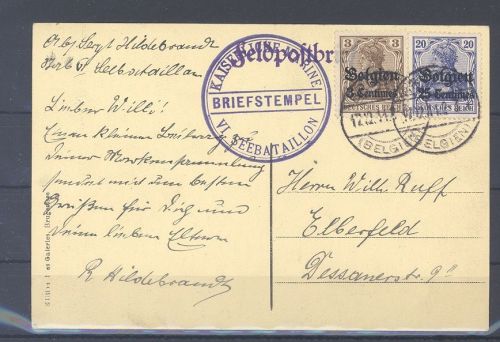 Abs. Sergt Hildebrandt
Seebataillon
Feldpostbr
KAISERLICHE MARINE
BRIEFSTEMPEL
VI. SEEBATAILLON
3 3
Belgien
3 Centimes
DEUTSCHES REICH
20 20
Belgien
25 Centimes
DEUTSCHES REICH
(BELGIEN)
(BELGIEN)
Lieber Willi!
Einen kleinen
Deiner Markensammlung
sendet mit den besten
Grüßen für Dich und
Deine lieben Eltern
R. Hildebrandt
Herrn Willi Ruff
Elberfeld
Dessauerstr. 9